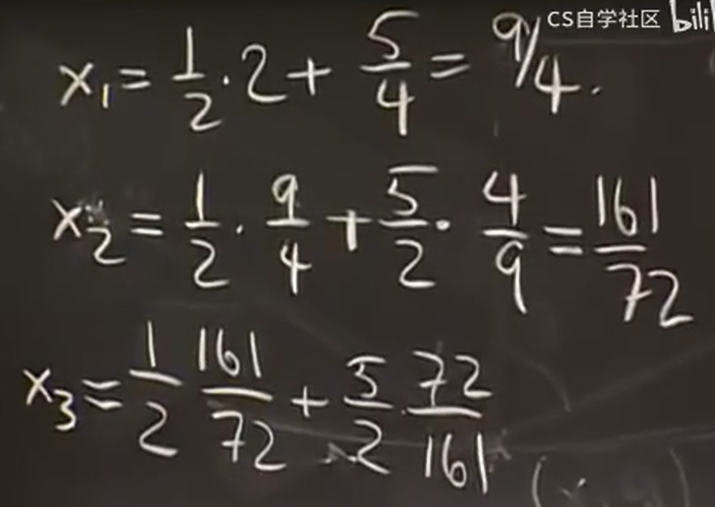 CS自学社区 bili
x₁ = 1/2 · 2 + 5/4 = 9/4.
x₂ = 1/2 · 9/4 + 5/2 · 4/9 = 161/72
x₃ = 1/2 161/72 + 5/2 · 72/161